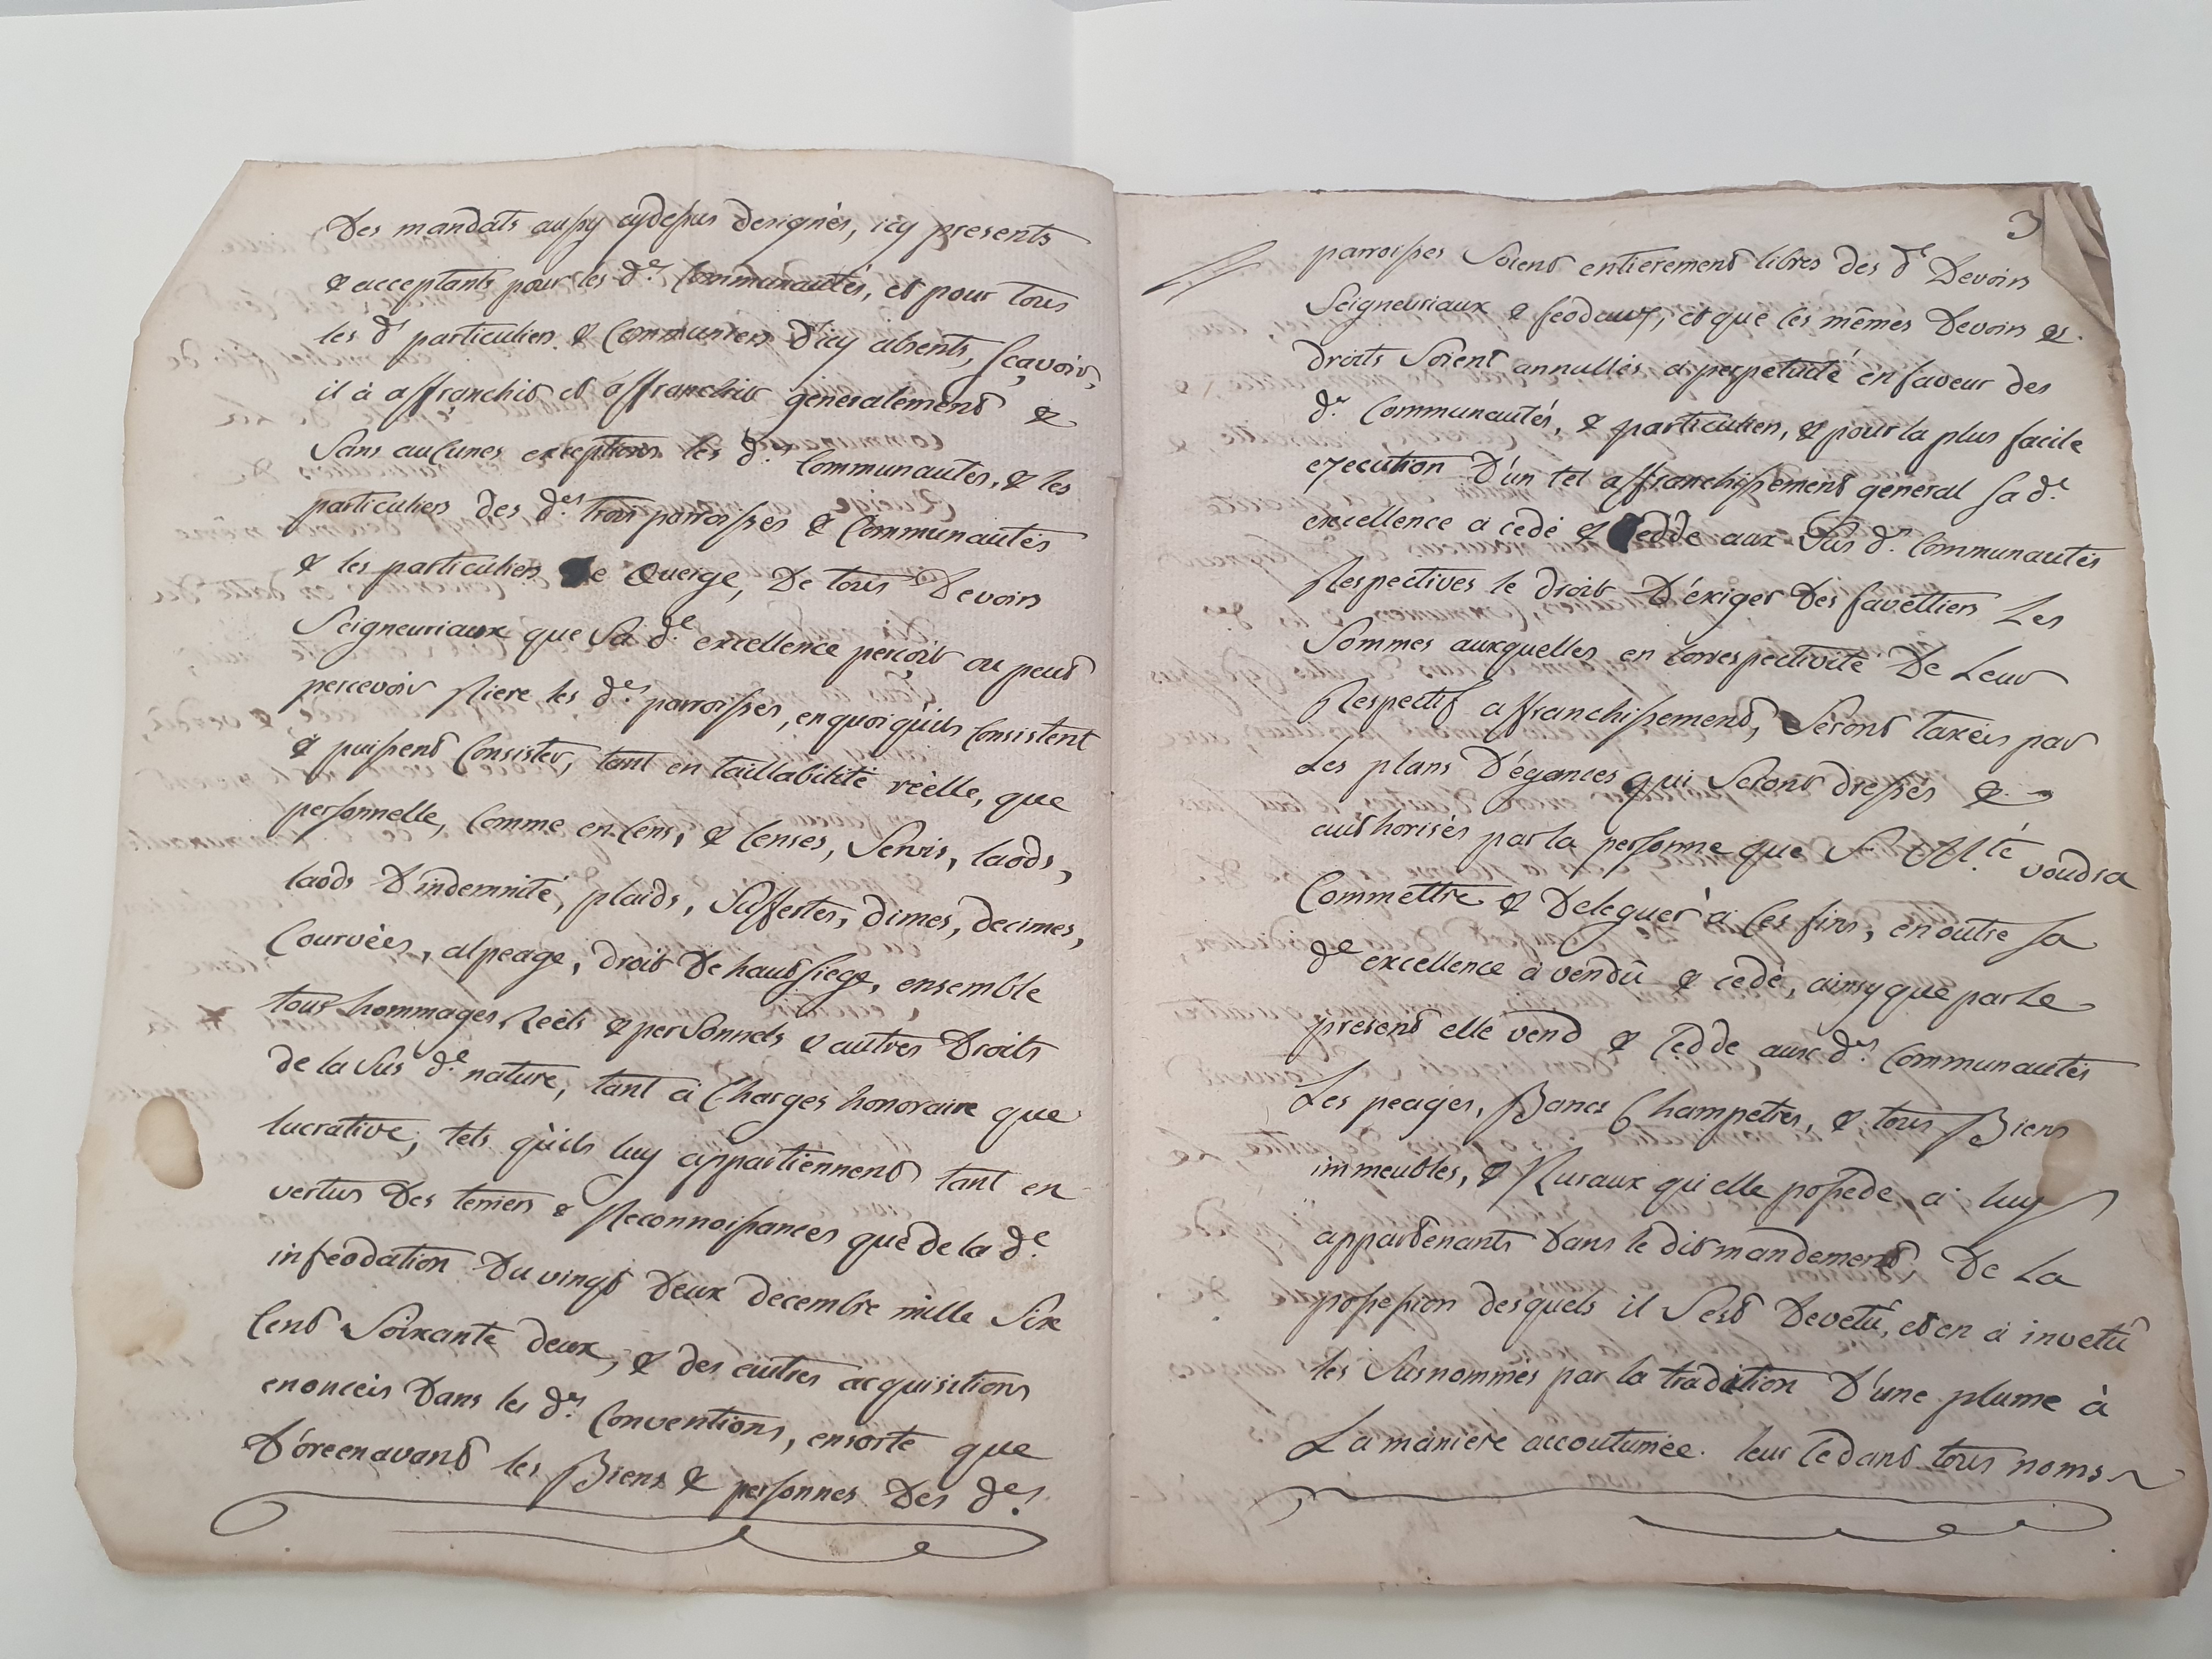 des mandats aussy cydessus designés, icy presents
& acceptants pour les d.es Communautés, et pour tous
les d.s particuliers & Communiers d'icy absents, sçavoir,
il à affranchit et affranchit generalement &
sans aucunes exceptions les d.es Communautés, & les
particuliers des d.es trois parroisses & Communautés
& les particuliers de Queige, De tous Devoirs
Seigneuriaux que sa d.e excellence perçoit ou peut
percevoir riere les d.es parroisses, en quoi qu'ils Consistent
& puissent Consister, tant en taillabilité réelle, que
personnelle, Comme en Cens, & Censes, Servis, laods,
laods D'indemnité, plaids, Suffertes, dimes, decimes,
Courvées, alpeage, droit De haut siege, ensemble
tous hommages Réels & personnels & autres Droits
de la sus d.e nature, tant à Charges honoraire que
lucrative, tels qu'ils luy appartiennent tant en
vertus Des terriers & Reconnoissances que de la d.e
infeodation Du vingt Deux decembre mille Six
Cent Soixante deux, & des autres acquisitions
enoncéis Dans les d.es Conventions, ensorte que
D'oreenavant les Biens & personnes Des d.es
3
parroisses Soient entierement libres des d.s Devoirs
Seigneuriaux & feodaux, et que les mêmes Devoirs &
droits Soient annullés à perpetuité en faveur des
d.es Communautés, & particuliers, & pour la plus facile
execution D'un tel affranchissement general sa d.e
excellence à cedé & Cedde aux Sus d.es Communautés
Respectives le droit D'éxiger Des favettiers Les
Sommes auxquelles en Correspectivité De Leur
Respectif affranchissement, Seront taxéis par
Les plans D'égances qui Seront dressés &
authorisés par la personne que S. M.té voudra
Commettre & Deleguer à Ces fins, en outre sa
d.e excellence à vendû & cedé, ainsy que par Le
present elle vend & Cedde aux d.es Communautés
Les peages, Bancs Champetres, & tous Biens
immeubles, & Ruraux qu'elle possede à luy
appartenants Dans le dit mandement, De La
possession desquels il s'est Devetû, et en à invetû
les Susnommés par la tradition D'une plume à
La maniere accoutumée. leur Cedant tous noms